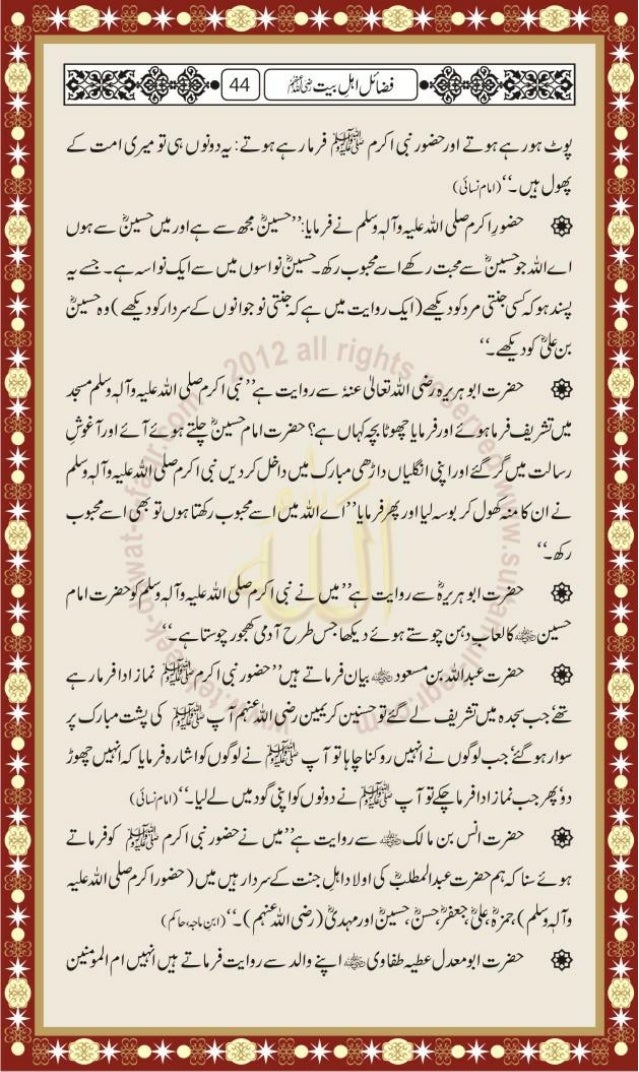 فضائل اہلِ بیت رضی اللہ عنہم
44
پوٹ ہورہے ہوتے اور حضور نبی اکرم ﷺ فرما رہے ہوتے: یہ دونوں ہی تو میری امت کے
پھول ہیں۔‘‘ (امام نسائی)
حضورِ اکرم صلی اللہ علیہ وآلہٖ وسلم نے فرمایا: ’’حسینؓ مجھ سے ہے اور میں حسینؓ سے ہوں
اے اللہ جو حسینؓ سے محبت رکھے اسے محبوب رکھ۔ حسینؓ نواسوں میں سے ایک نواسہ ہے۔ جسے یہ
پسند ہو کہ کسی جنتی مرد کو دیکھے (ایک روایت میں ہے کہ جنتی نوجوانوں کے سردار کو دیکھے) وہ حسینؓ
بن علیؓ کو دیکھے۔‘‘
حضرت ابوہریرہ رضی اللہ تعالیٰ عنہٗ سے روایت ہے ’’نبی اکرم صلی اللہ علیہ وآلہٖ وسلم مسجد
میں تشریف فرما ہوئے اور فرمایا چھوٹا بچہ کہاں ہے؟ حضرت امام حسینؓ چلتے ہوئے آئے اور آغوشِ
رسالت میں گر گئے اور اپنی انگلیاں داڑھی مبارک میں داخل کر دیں نبی اکرم صلی اللہ علیہ وآلہٖ وسلم
نے ان کا منہ کھول کر بوسہ لیا اور پھر فرمایا ’’اے اللہ میں اسے محبوب رکھتا ہوں تو بھی اسے محبوب
رکھ۔‘‘
حضرت ابوہریرہؓ سے روایت ہے ’’میں نے نبی اکرم صلی اللہ علیہ وآلہٖ وسلم کو حضرت امام
حسین رضی اللہ عنہ کا لعابِ دہن چوستے ہوئے دیکھا جس طرح آدمی کھجور چوستا ہے۔‘‘
حضرت عبداللہ بن مسعود رضی اللہ عنہ بیان فرماتے ہیں ’’حضور نبی اکرم ﷺ نماز ادا فرما رہے
تھے‘ جب سجدہ میں تشریف لے گئے تو حسنین کریمین رضی اللہ عنہم آپ ﷺ کی پشت مبارک پر
سوار ہو گئے‘ جب لوگوں نے انہیں روکنا چاہا تو آپ ﷺ نے لوگوں کو اشارہ فرمایا کہ انہیں چھوڑ
دو‘ پھر جب نماز ادا فرما چکے تو آپ ﷺ نے دونوں کو اپنی گود میں لے لیا۔‘‘ (امام نسائی)
حضرت انس بن مالک رضی اللہ عنہ سے روایت ہے ’’میں نے حضور نبی اکرم ﷺ کو فرماتے
ہوئے سنا کہ ہم حضرت عبدالمطلبؓ کی اولاد اہلِ جنت کے سردار ہیں میں (حضور اکرم صلی اللہ علیہ
وآلہٖ وسلم)، حمزہؓ، علیؓ، جعفرؓ، حسنؓ، حسینؓ اور مہدیؓ (رضی اللہ عنہم)۔‘‘ (ابنِ ماجہ، حاکم)
حضرت ابو معدل عطیہ طفاوی رضی اللہ عنہ اپنے والد سے روایت فرماتے ہیں انہیں ام المومنین
2012 all rights reserved